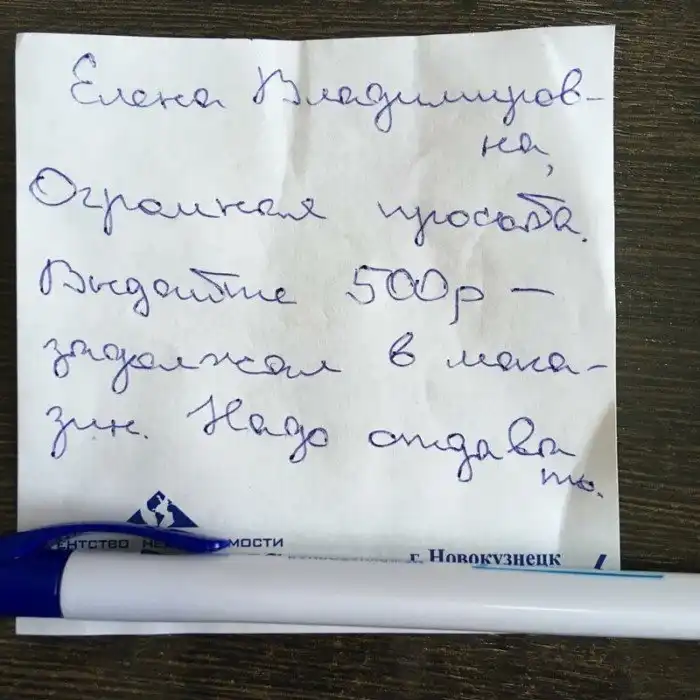 Елена Владимиров-
на,
Огромная просьба.
Выдайте 500р –
задолжал в мага-
зин. Надо отдава
ть.
ЕНТСТВО НЕ ИМОСТИ
г. Новокузнецк